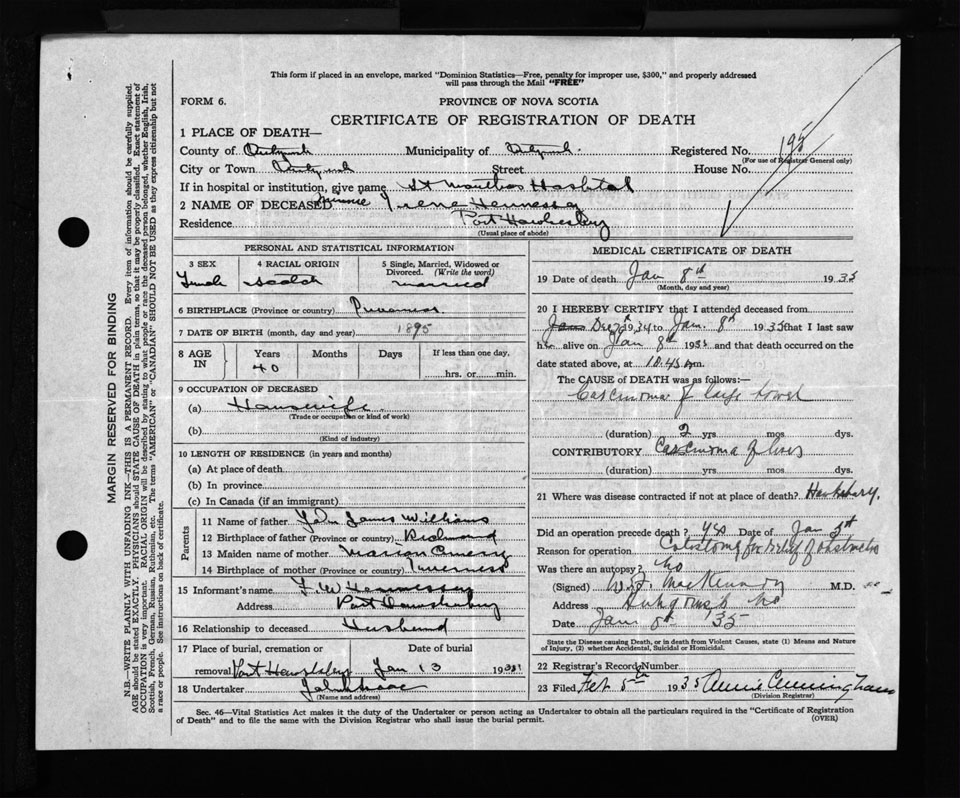 This form if placed in an envelope, marked "Dominion Statistics—Free, penalty for improper use, $300," and properly addressed
will pass through the Mail "FREE"
FORM 6.
PROVINCE OF NOVA SCOTIA
CERTIFICATE OF REGISTRATION OF DEATH
1 PLACE OF DEATH—
County of Municipality of Registered No. 195
(For use of Registrar General only)
City or Town Street House No.
If in hospital or institution, give name St Hospital
2 NAME OF DECEASED Irene Hennessy
Residence Port Hawkesbury
(Usual place of abode)
PERSONAL AND STATISTICAL INFORMATION
3 SEX Female
4 RACIAL ORIGIN Scotch
5 Single, Married, Widowed or Divorced. (Write the word) married
6 BIRTHPLACE (Province or country)
7 DATE OF BIRTH (month, day and year) 1895
8 AGE IN Years 40 Months Days If less than one day, hrs. or min.
9 OCCUPATION OF DECEASED
(a) Housewife
(Trade or occupation or kind of work)
(b)
(Kind of industry)
10 LENGTH OF RESIDENCE (in years and months)
(a) At place of death
(b) In province
(c) In Canada (if an immigrant)
Parents
11 Name of father John James Williams
12 Birthplace of father (Province or country) Richmond
13 Maiden name of mother Marion
14 Birthplace of mother (Province or country) Inverness
15 Informant's name F. W Hennessey
Address Port Hawkesbury
16 Relationship to deceased Husband
17 Place of burial, cremation or Date of burial
removal Port Hawkesbury Jan 13 193
18 Undertaker
(Name and address)
MEDICAL CERTIFICATE OF DEATH
19 Date of death Jan 8th 1935
(Month, day and year)
20 I HEREBY CERTIFY that I attended deceased from
Dec 1934 to Jan. 8th 1935 that I last saw
her alive on Jan 8th 1935 and that death occurred on the
date stated above, at 10.45 m.
The CAUSE OF DEATH was as follows:—
Carcinoma of large bowel
(duration) 2 yrs mos dys.
CONTRIBUTORY Carcinoma of liver
(duration) yrs mos dys.
21 Where was disease contracted if not at place of death? Hawksbury.
Did an operation precede death? yes Date of Jan
Reason for operation Colostomy for relief of obstruction
Was there an autopsy? No
(Signed) MacKennedy M.D.
Address
Date Jan 8th 35
State the Disease causing Death, or in death from Violent Causes, state (1) Means and Nature
of Injury, (2) whether Accidental, Suicidal or Homicidal.
22 Registrar's Record Number
23 Filed Feb 5th 1935 Annie Cunningham
(Division Registrar)
Sec. 46—Vital Statistics Act makes it the duty of the Undertaker or person acting as Undertaker to obtain all the particulars required in the "Certificate of Registration
of Death" and to file the same with the Division Registrar who shall issue the burial permit.
(OVER)
MARGIN RESERVED FOR BINDING
N.B.—WRITE PLAINLY WITH UNFADING INK—THIS IS A PERMANENT RECORD. Every item of information should be carefully supplied.
AGE should be stated EXACTLY. PHYSICIANS should STATE CAUSE OF DEATH in plain terms, so that it may be properly classified. Exact statement of
OCCUPATION is very important. RACIAL ORIGIN will be described by stating to what people or race the deceased person belonged, whether English, Irish,
Scottish, French, German, Russian, Ruthenian, etc. The terms "AMERICAN" or "CANADIAN" SHOULD NOT BE USED as they express citizenship but not
a race or people. See instructions on back of certificate.